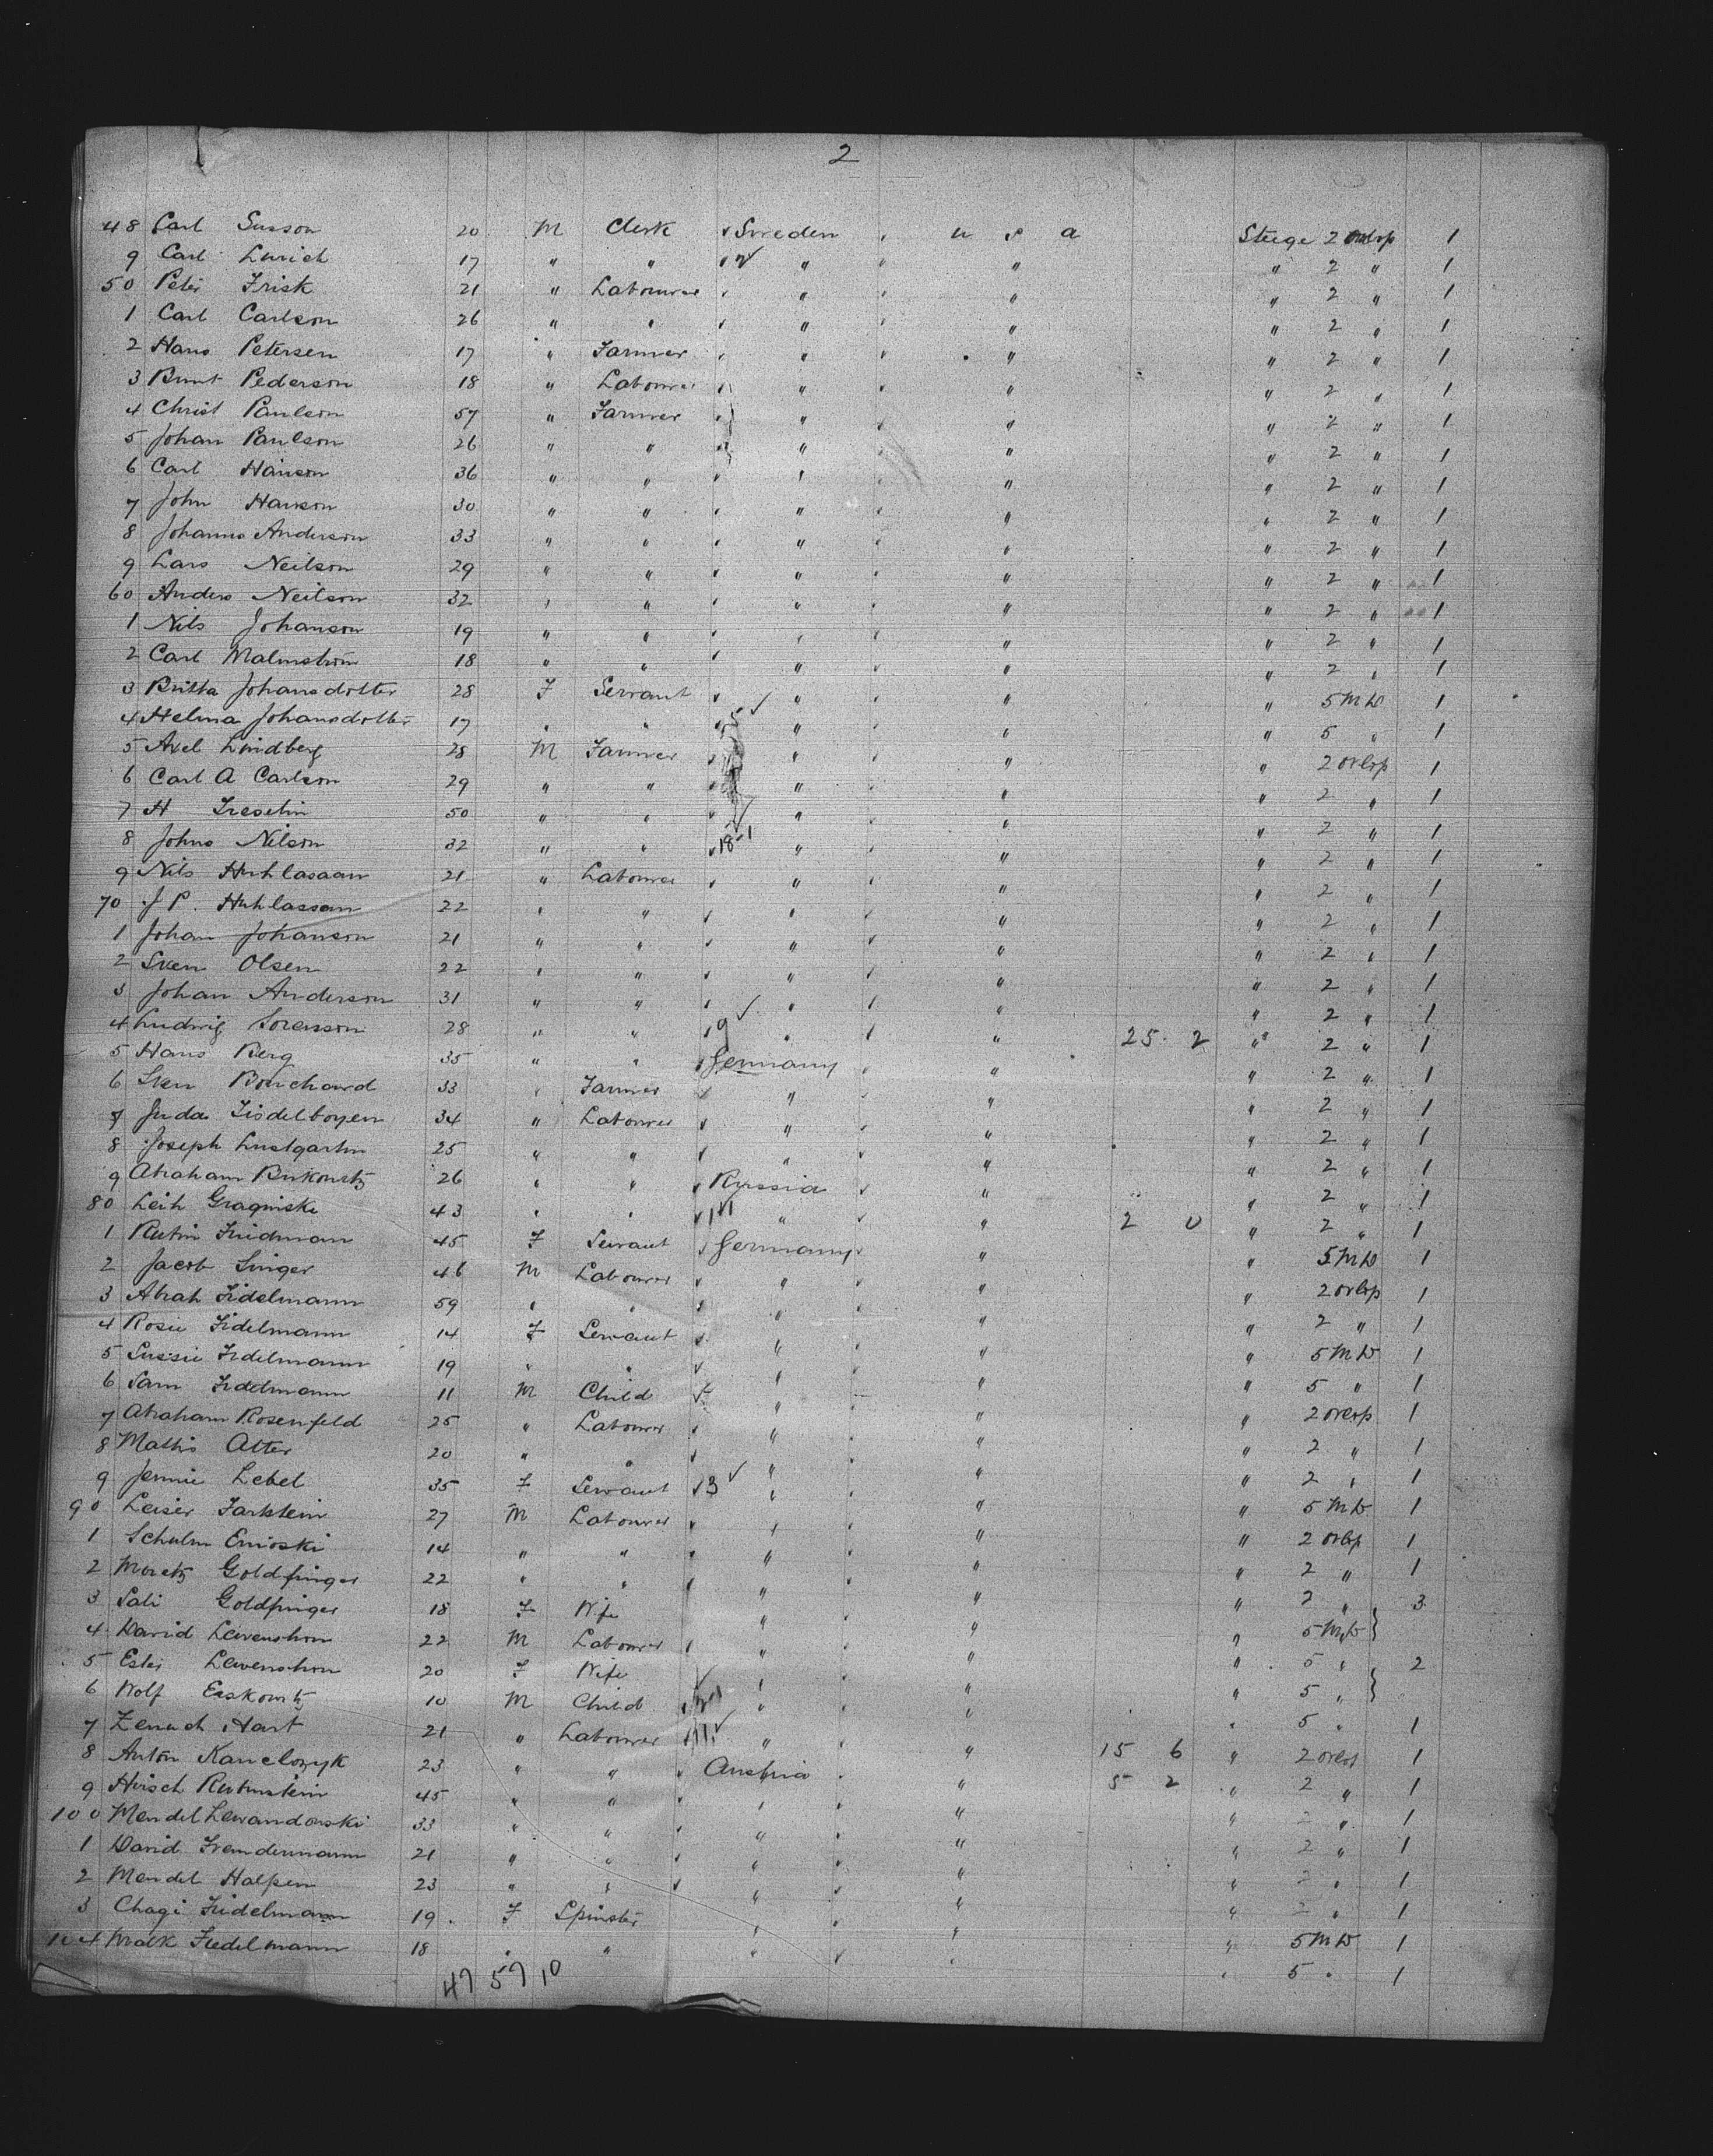 2
48 Carl Susson 20 M Clerk Sweden u s a Steege 2 orlop 1
9 Carl Lurich 17 " " " " " 2 " 1
50 Peter Frisk 21 " Labourer " " " 2 " 1
1 Carl Carlson 26 " " " " " 2 " 1
2 Hans Petersen 17 " Farmer " " " 2 " 1
3 Bunt Pederson 18 " Labourer " " " 2 " 1
4 Christ Paulson 57 " Farmer " " " 2 " 1
5 Johan Paulson 26 " " " " " 2 " 1
6 Carl Hanson 36 " " " " " 2 " 1
7 John Hanson 30 " " " " " 2 " 1
8 Johanns Anderson 33 " " " " " 2 " 1
9 Lars Neilson 29 " " " " " 2 " 1
60 Anders Neilson 32 " " " " " 2 " 1
1 Nils Johanson 19 " " " " " 2 " 1
2 Carl Malmstrom 18 " " " " " 2 " 1
3 Britta Johansdotter 28 F Servant " " " 5 M W 1
4 Helma Johansdotter 17 " " 5 " " " 5 " 1
5 Axel Lindberg 28 M Farmer " " " 2 orlop 1
6 Carl A Carlson 29 " " " " " 2 " 1
7 H 50 " " " " " 2 " 1
8 Johns Nilson 32 " " 18 1 " " " 2 " 1
9 Nils Huhlasaan 21 " Labourer " " " 2 " 1
70 J P. Huhlassan 22 " " " " " 2 " 1
1 Johan Johanson 21 " " " " " 2 " 1
2 Sven Olsen 22 " " " " " 2 " 1
3 Johan Anderson 31 " " " " " 2 " 1
4 Ludwig Sorenson 28 " " 9 " " 25. 2 " 2 " 1
5 Hans Berg 35 " " Germany " " 2 " 1
6 Sven Bouchard 33 " Farmer " " " 2 " 1
7 Juda Fisdelboyen 34 " Labourer " " " 2 " 1
8 Joseph Lustgarten 25 " " " " " 2 " 1
9 Abraham Berkowitz 26 " " Russia " " 2 " 1
80 Leih Gragniski 43 " " " " 2 0 " 2 " 1
1 Rubin Fridman 45 F Servant Germany " " 5 M W 1
2 Jacob Singer 46 M Labourer " " " 2 orlop 1
3 Abrah Fidelmann 59 " " " " " 2 " 1
4 Rosie Fidelmann 14 F Servant " " " 5 M W 1
5 Sussie Fidelmann 19 " " " " " 5 " 1
6 Sam Fidelmann 11 M Child " " " 2 orlop 1
7 Abraham Rosenfeld 25 " Labourer " " " 2 " 1
8 Mathis Atter 20 " " " " " 2 " 1
9 Jennie Lebel 35 F Servant 3 " " " 5 M W 1
90 Leiser Farkstein 27 M Labourer " " " 2 orlop 1
1 Schulm Emioski 14 " " " " " 2 " 1
2 Moretz Goldfinger 22 " " " " " 2 " 3
3 Sali Goldfinger 18 F Wife " " " 5 M W
4 David Lewenshon 22 M Labourer " " " 5 " 2
5 Ester Lewenshon 20 F Wife " " " 5 "
6 Wolf Easkowitz 10 M Child " " " 5 " 1
7 Zenuch Hart 21 " Labourer 11 " " 15 6 " 2 orlop 1
8 Anton Kanelozyk 23 " " Austria " 5 2 " 2 " 1
9 Hirsch Rubinstein 45 " " " " " 2 " 1
100 Mendel Lewandowski 33 " " " " " 2 " 1
1 David Fremdermann 21 " " " " " 2 " 1
2 Mendel Halpern 23 " " " " " 2 " 1
3 Chagi Fridelmann 19 F Spinster " " " 5 M W 1
104 Fredelmann 18 " " " " " 5 " 1
47 57 10